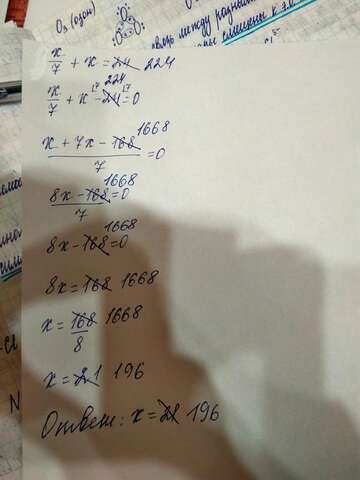 O₃ (озон)
x/7 + x = 24 224
x/7 + x - 24 224 = 0
(x + 7x - 168 1668)/7 = 0
(8x - 168 1668)/7 = 0
8x - 168 1668 = 0
8x = 168 1668
x = 168/8 1668
x = 21 196
Ответ: x = 21 196